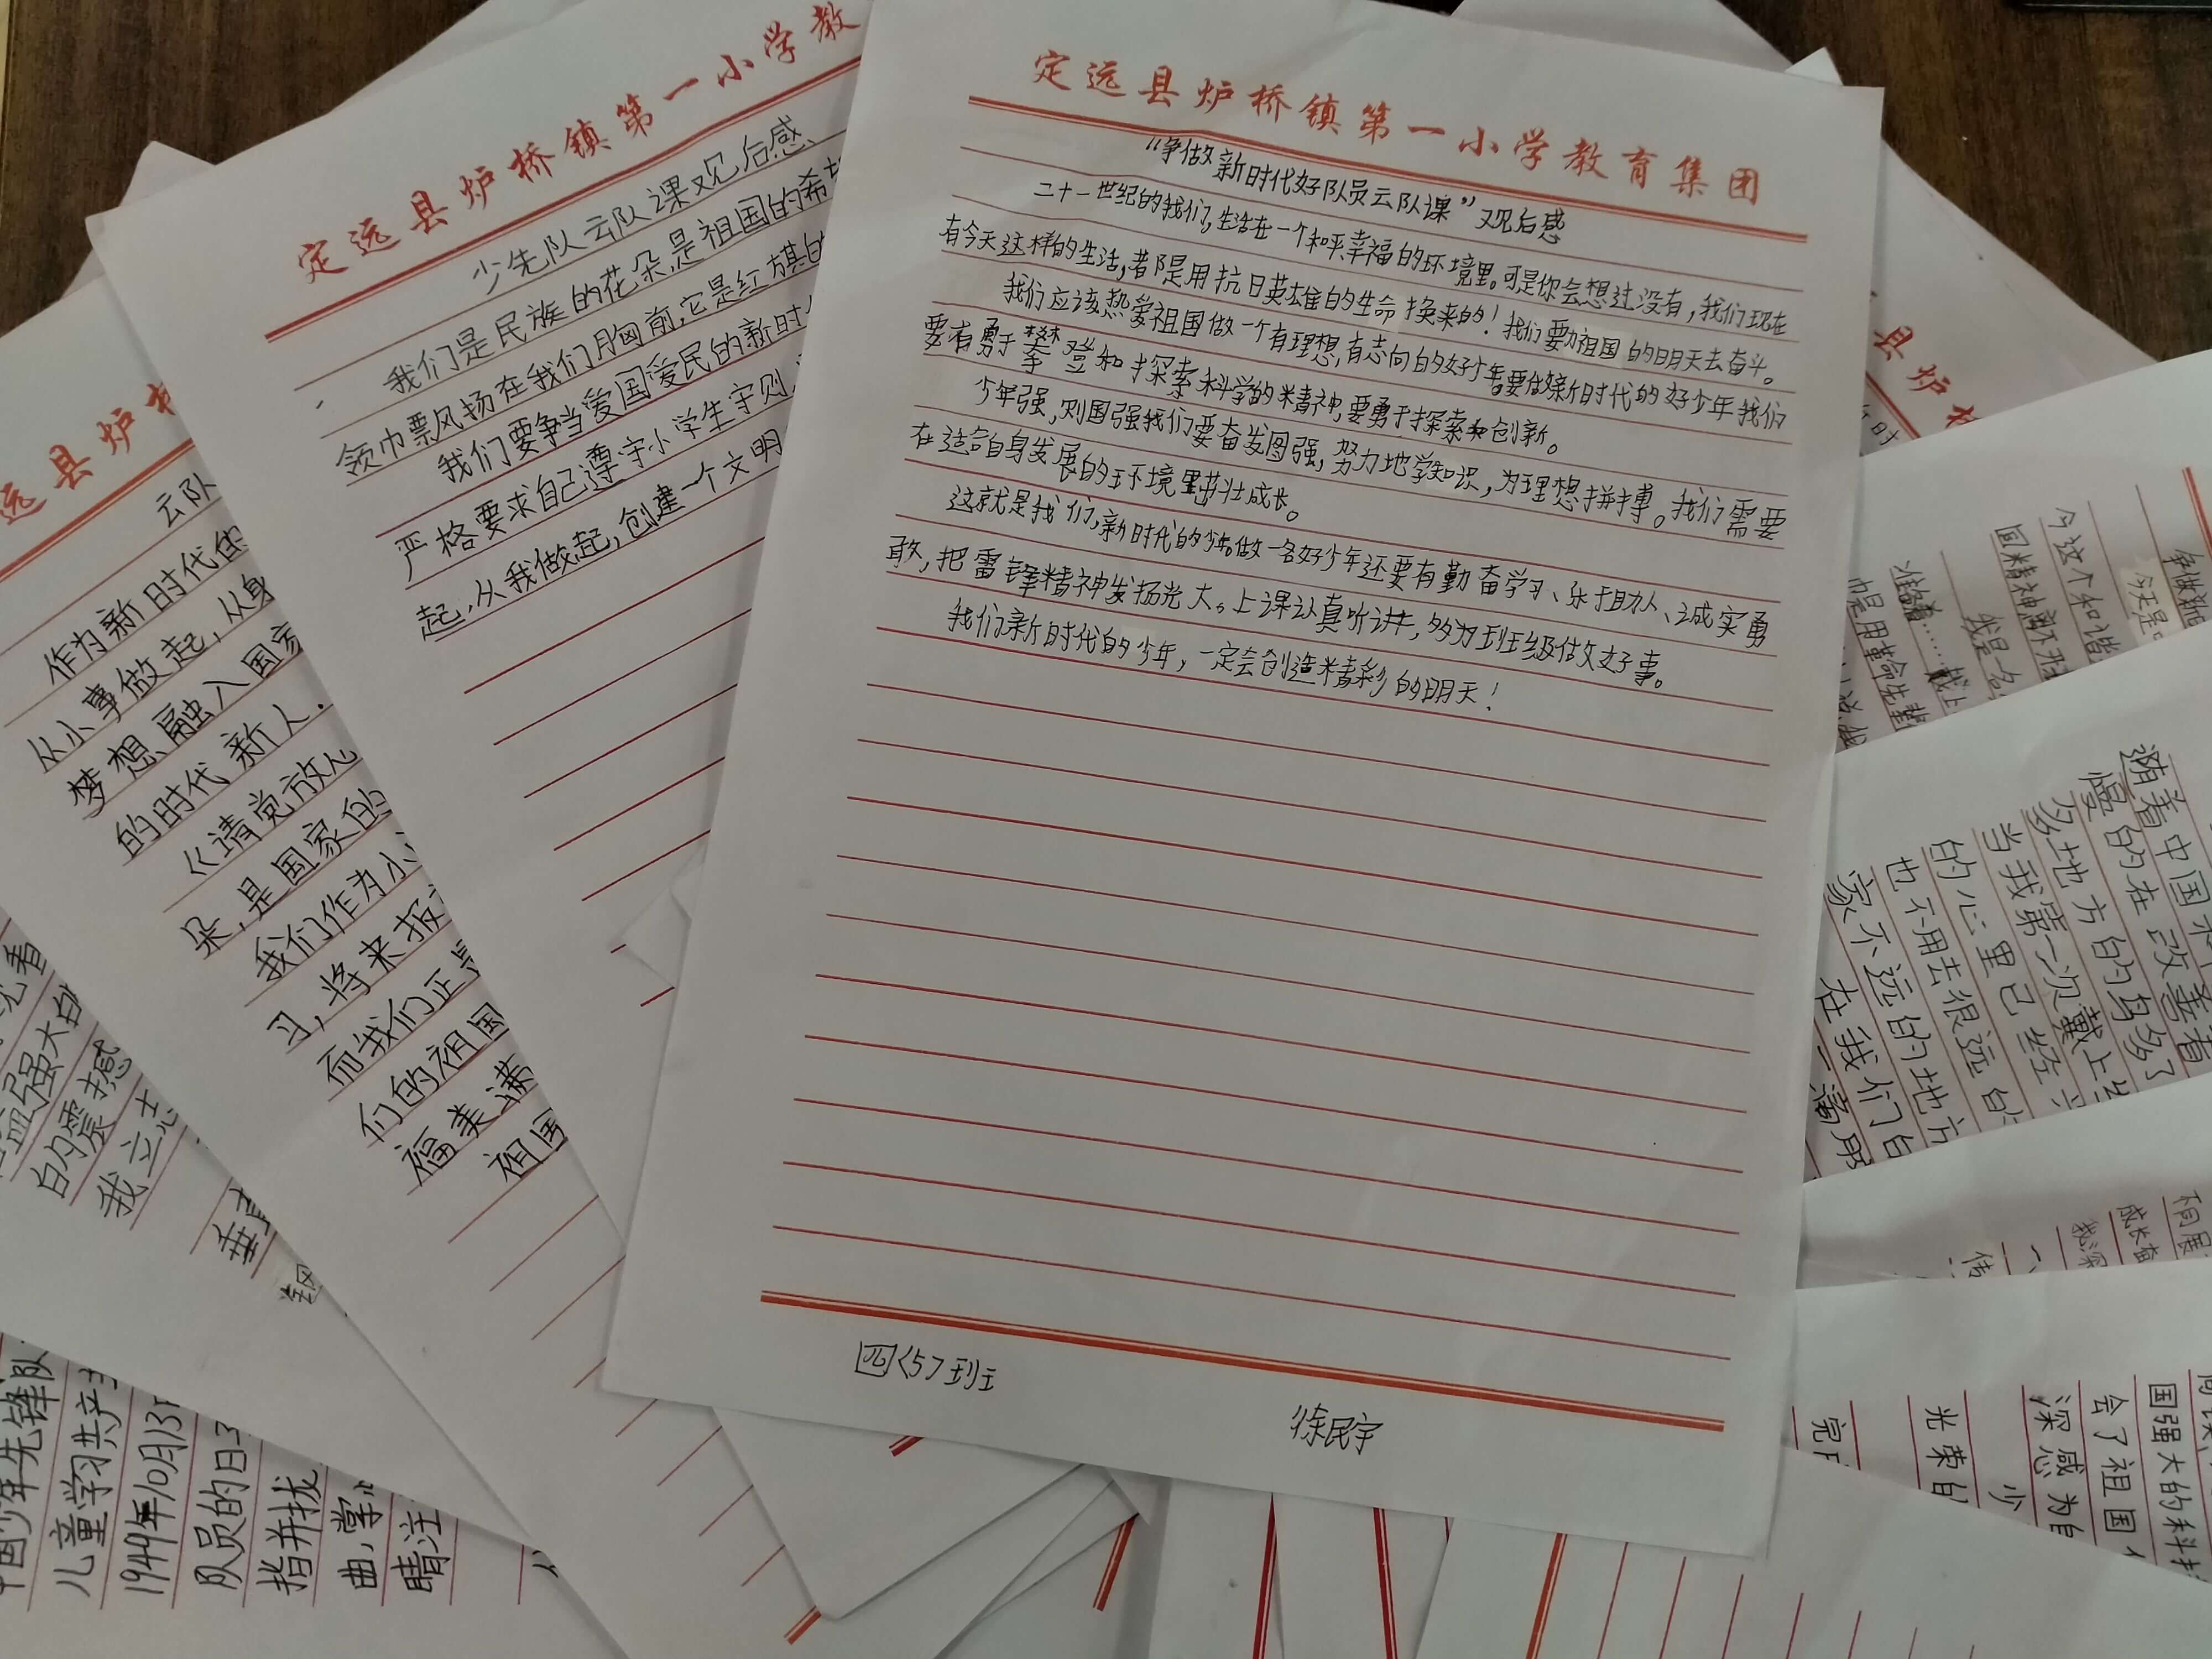 定远县炉桥镇第一小学教育集团
“争做新时代好队员云队课”观后感
二十一世纪的我们,生活在一个和平幸福的环境里。可是你会想过没有,我们现在
有今天这样的生活,都是用抗日英雄的生命换来的!我们要为祖国的明天去奋斗。
我们应该热爱祖国做一个有理想,有志向的好少年要做新时代的好少年我们
要有勇于攀登和探索科学的精神,要勇于探索和创新。
少年强,则国强我们要奋发图强,努力地学知识,为理想拼搏。我们需要
在适合自身发展的环境里茁壮成长。
这就是我们,新时代的少年做一名好少年还要有勤奋学习、乐于助人、诚实勇
敢,把雷锋精神发扬光大。上课认真听讲,多为班级做好事。
我们新时代的少年,一定会创造精彩的明天!
四<5>班
徐民宇
定远县炉桥镇第一小学教
少先队云队课观后感
我们是民族的花朵是祖国的希
领巾飘扬在我们胸前,它是红旗的
我们要争当爱国爱民的新时
严格要求自己遵守小学生守则
起,从我做起,创建一个文明
远县炉
云队
作为新时代的
从小事做起,从身
梦想融入国家
的时代新人.
《请党放心
朵,是国家的
我们作为小
习,将来报
而我们正
们的祖国
福美满
祖国
着
强大的
的震撼
我立志
年先锋队
儿童学习共产主
1949年10月13日
队员的日
指并拢
曲,掌心
睛注
县炉
时
争做新
今这个和谐
我是一名
准备着……
是用革命先辈
中国
慢的在改善着
多地方的身
当我第一次戴上
的心里已经
也不用去很远的
家不远的地方
在我们
成长
我深
国强大的科技
会了祖国
深感为自
少
光荣的
完